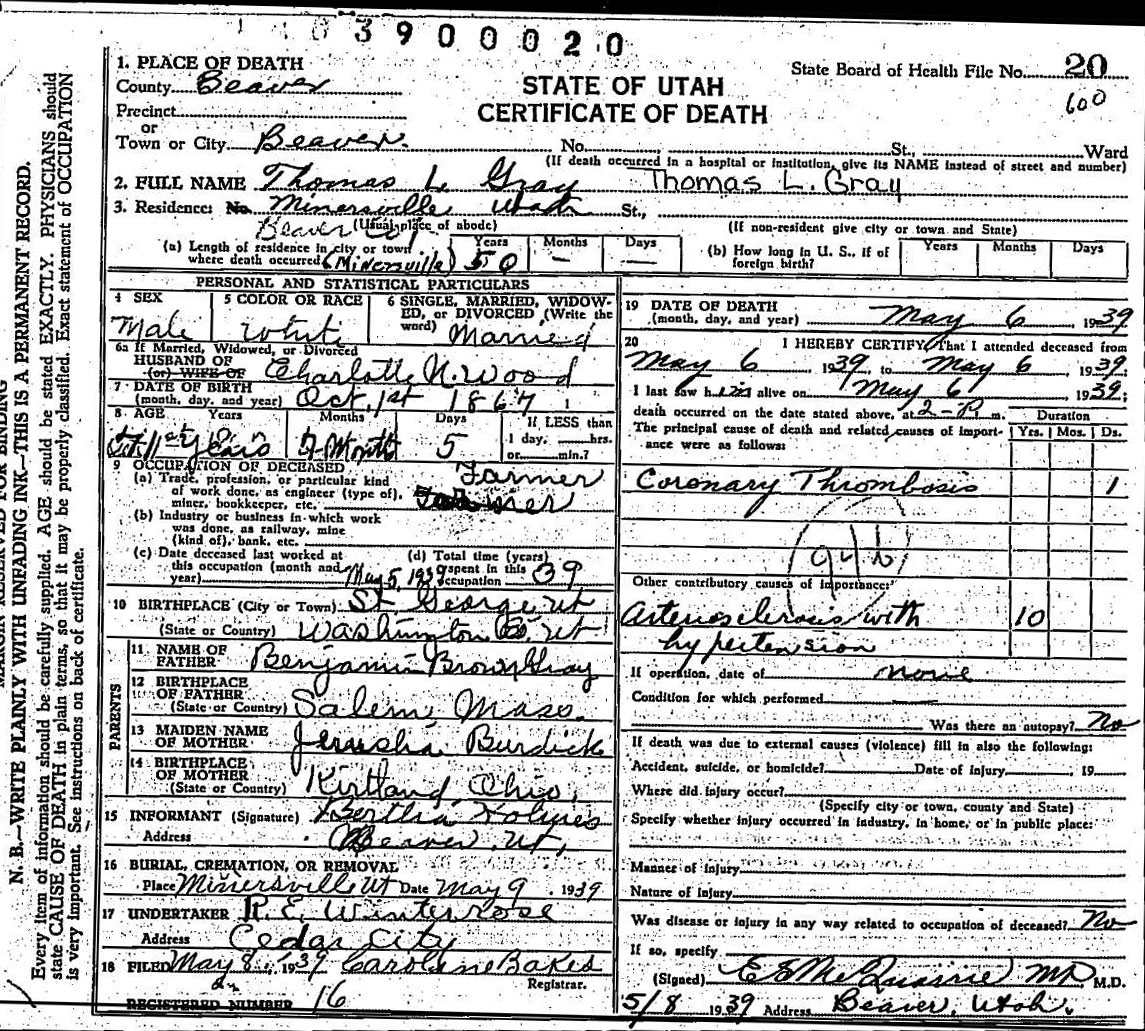 3900020
1. PLACE OF DEATH
County Beaver
Precinct
or
Town or City Beaver.
STATE OF UTAH
CERTIFICATE OF DEATH
State Board of Health File No. 20
600
No. , St., Ward
(If death occurred in a hospital or institution, give its NAME instead of street and number)
2. FULL NAME Thomas L. Gray Thomas L. Gray
3. Residence: No. Minersville Utah St.,
Beaver Co. (Usual place of abode) (If non-resident give city or town and State)
(a) Length of residence in city or town where death occurred (Minersville) Years 50 Months — Days —
(b) How long in U. S., if of foreign birth? Years Months Days
PERSONAL AND STATISTICAL PARTICULARS
4 SEX
Male
5 COLOR OR RACE
White
6 SINGLE, MARRIED, WIDOWED, or DIVORCED (Write the word) Married
6a If Married, Widowed, or Divorced
HUSBAND OF
(or) WIFE OF Charlotte N. Wood
7 DATE OF BIRTH
(month, day, and year) Oct. 1st 1867
8 AGE Years Months Days If LESS than
Years Month 5 1 day, hrs.
or min.?
9 OCCUPATION OF DECEASED
(a) Trade, profession, or particular kind Farmer
of work done, as engineer (type of),
miner, bookkeeper, etc.
(b) Industry or business in which work
was done, as railway, mine
(kind of), bank, etc.
(c) Date deceased last worked at
this occupation (month and
year) May 5, 1939
(d) Total time (years)
spent in this
occupation 39
10 BIRTHPLACE (City or Town) St. George, Ut
(State or Country) Washington Co. Ut
PARENTS
11 NAME OF
FATHER Benjamin Brown Gray
12 BIRTHPLACE
OF FATHER
(State or Country) Salem, Mass.
13 MAIDEN NAME
OF MOTHER Jerusha Burdick
14 BIRTHPLACE
OF MOTHER
(State or Country) Kirtland, Ohio,
15 INFORMANT (Signature) Bertha Holmes
Address Beaver, Ut,
16 BURIAL, CREMATION, OR REMOVAL
Place Minersville Ut Date May 9, 1939
17 UNDERTAKER R. E. Winterrose
Address Cedar City
18 FILED May 8, 1939 Caroline Bakes
Registrar.
REGISTERED NUMBER 16
19 DATE OF DEATH
(month, day, and year) May 6 1939
20 I HEREBY CERTIFY, That I attended deceased from
May 6 1939, to May 6 1939;
I last saw him alive on May 6 1939;
death occurred on the date stated above, at 2-P m.
The principal cause of death and related causes of importance were as follows:
Duration
Yrs. Mos. Ds.
Coronary Thrombosis 1
94b
Other contributory causes of importance:
Arteriosclerosis with 10
hypertension
If operation, date of none
Condition for which performed
Was there an autopsy? No
If death was due to external causes (violence) fill in also the following:
Accident, suicide, or homicide? Date of injury , 19
Where did injury occur?
(Specify city or town, county and State)
Specify whether injury occurred in industry, in home, or in public place:
Manner of injury
Nature of injury
Was disease or injury in any way related to occupation of deceased? No
If so, specify
(Signed) E S McQuarrie MD M.D.
5/8 1939 Address Beaver, Utah.
MARGIN RESERVED FOR BINDING
N. B.—WRITE PLAINLY WITH UNFADING INK—THIS IS A PERMANENT RECORD.
Every item of information should be carefully supplied. AGE should be stated EXACTLY. PHYSICIANS should
state CAUSE OF DEATH in plain terms, so that it may be properly classified. Exact statement of OCCUPATION
is very important. See instructions on back of certificate.